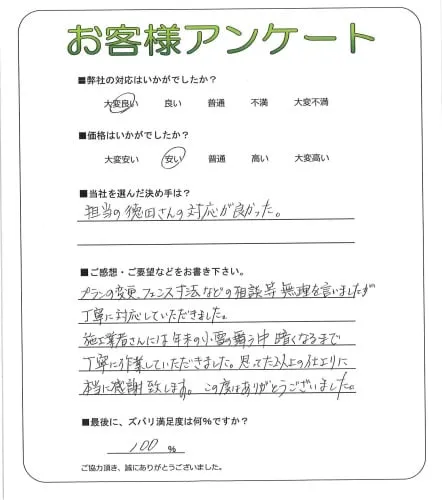 お客様アンケート
■弊社の対応はいかがでしたか？
大変良い 良い 普通 不満 大変不満
■価格はいかがでしたか？
大変安い 安い 普通 高い 大変高い
■当社を選んだ決め手は？
担当の徳田さんの対応が良かった。
■ご感想・ご要望などをお書き下さい。
プランの変更、フェンス寸法などの相談等 無理を言いましたが
丁寧に対応していただきました。
施工業者さんには年末の小雪の舞う中 暗くなるまで
丁寧に作業していただきました。思ってた以上の仕上りに
本当に感謝致します。この度はありがとうございました。
■最後に、ズバリ満足度は何%ですか？
100 %
ご協力頂き、誠にありがとうございました。